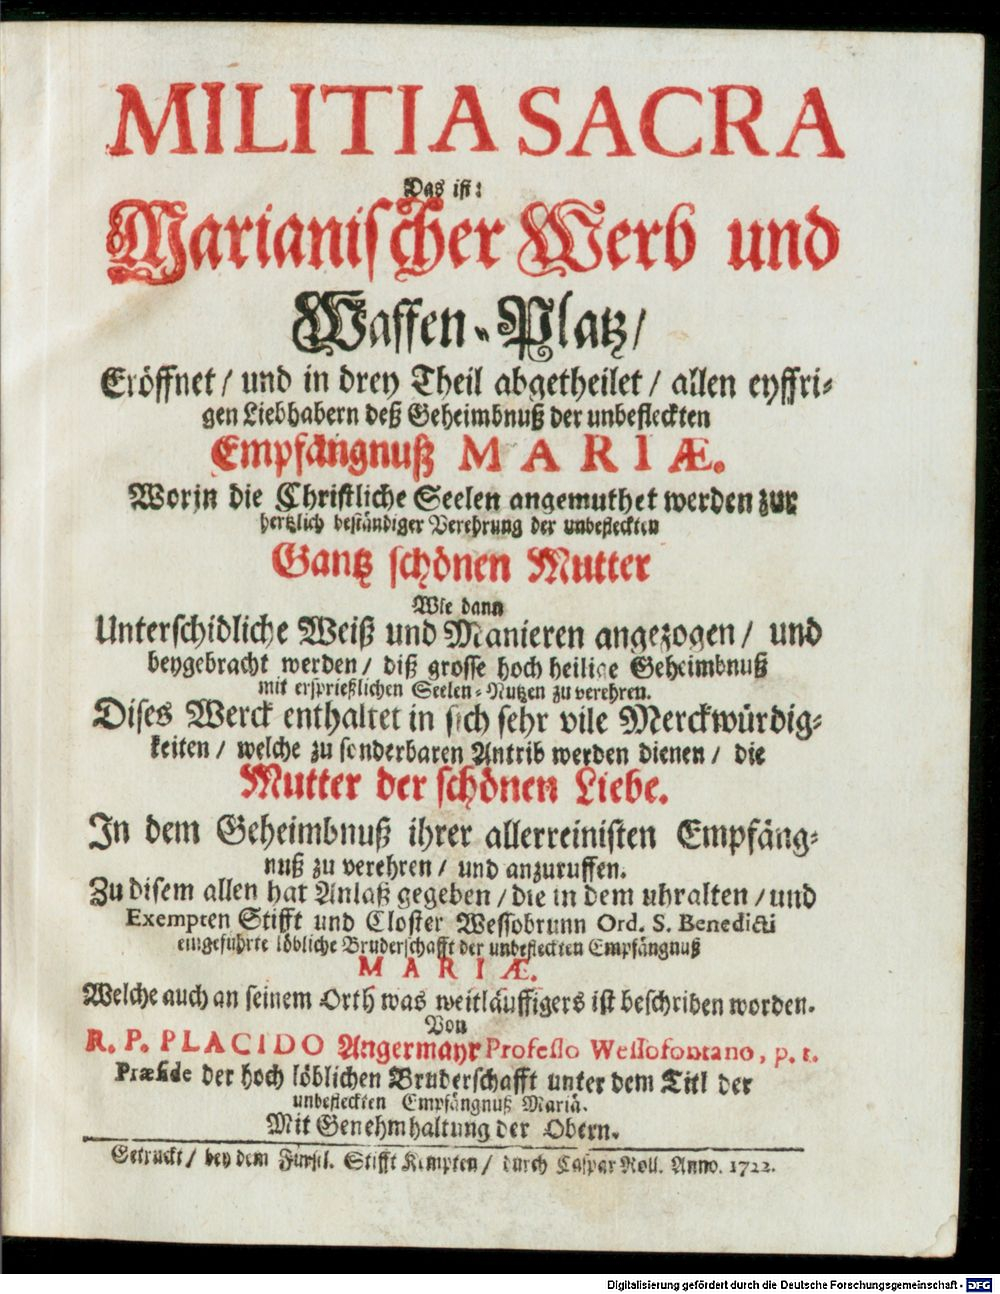 MILITIA SACRA
Das ist:
Marianischer Werb und
Waffen-Platz/
Eröffnet / und in drey Theil abgetheilet / allen eyffri-
gen Liebhabern deß Geheimbnuß der unbefleckten
Empfängnuß MARIÆ.
Worin die Christliche Seelen angemuthet werden zur
hertzlich beständiger Verehrung der unbefleckten
Gantz schönen Mutter
Wie dann
Unterschidliche Weiß und Manieren angezogen / und
beygebracht werden / diß grosse hoch heilige Geheimbnuß
mit ersprießlichen Seelen-Nutzen zu verehren.
Dises Werck enthaltet in sich sehr vile Merckwürdig-
keiten / welche zu sonderbaren Antrib werden dienen / die
Mutter der schönen Liebe.
In dem Geheimbnuß ihrer allerreinisten Empfäng-
nuß zu verehren / und anzuruffen.
Zu disem allen hat Anlaß gegeben / die in dem uhralten / und
Exempten Stifft und Closter Wessobrunn Ord. S. Benedicti
eingeführte löbliche Bruderschafft der unbefleckten Empfängnuß
MARIÆ.
Welche auch an seinem Orth was weitläuffigers ist beschriben worden.
Von
R. P. PLACIDO Angermayr Professo Wessofontano, p. t.
Præside der hoch löblichen Bruderschafft unter dem Titl der
unbefleckten Empfängnuß Mariä.
Mit Genehmhaltung der Obern.
Getruckt / bey dem Fürstl. Stifft Kempten / durch Caspar Roll. Anno. 1722.
Digitalisierung gefördert durch die Deutsche Forschungsgemeinschaft - DFG